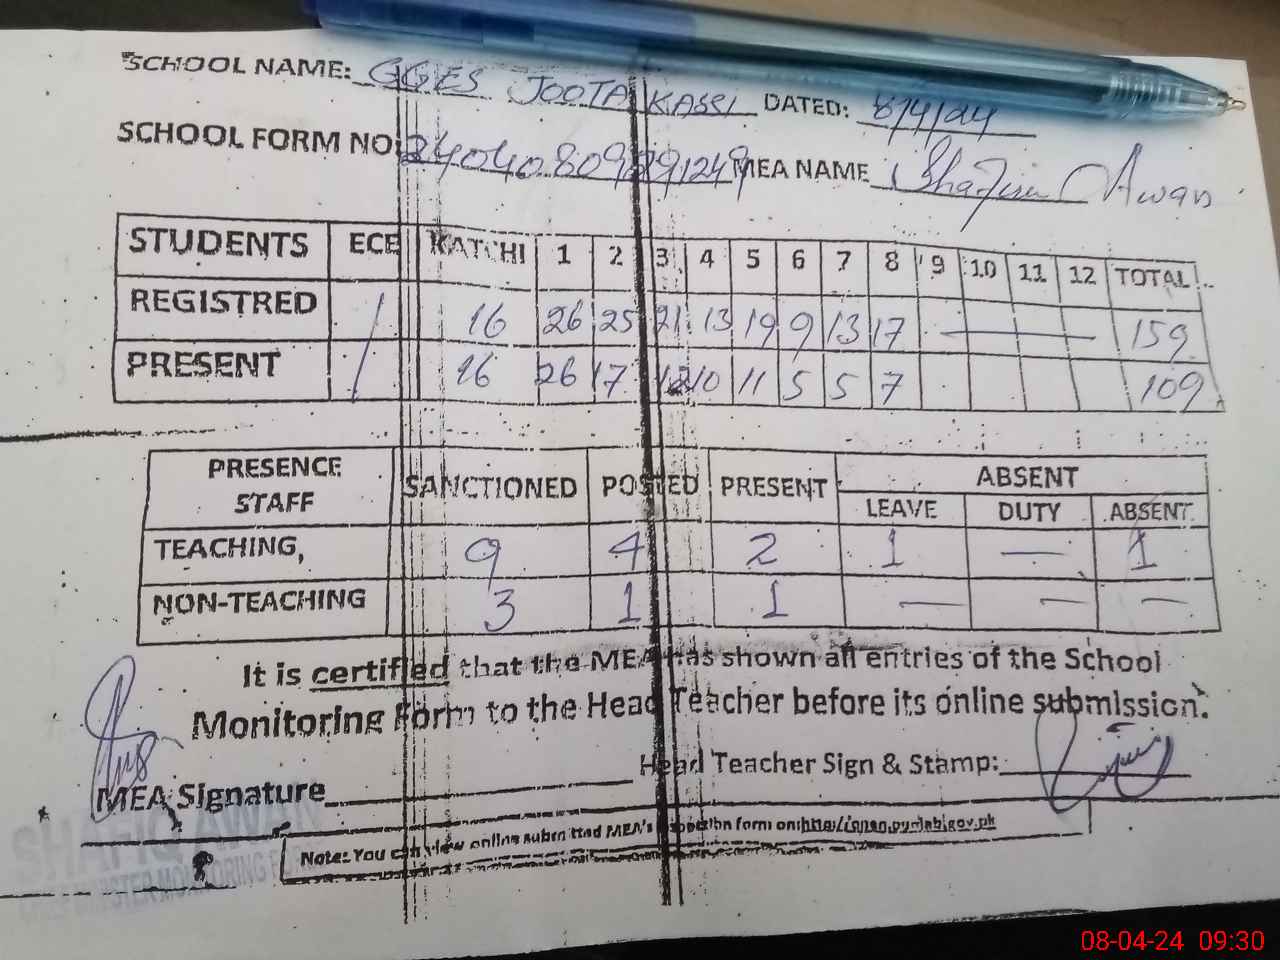 SCHOOL NAME: GGES JOOTA KASSI DATED: 8/4/24
SCHOOL FORM NO: MEA NAME Shafiq Awan
STUDENTS ECE KATCHI 1 2 3 4 5 6 7 8 9 10 11 12 TOTAL
REGISTRED / 16 26 25 21 13 19 9 13 17 — 159
PRESENT / 16 26 17 12 10 11 5 5 7 109
PRESENCE STAFF SANCTIONED POSTED PRESENT ABSENT
LEAVE DUTY ABSENT
TEACHING, 9 4 2 1 — 1
NON-TEACHING 3 1 1 — — —
It is certified that the MEA has shown all entries of the School
Monitoring Form to the Head Teacher before its online submission.
MEA Signature Head Teacher Sign & Stamp:
SHAFIQ AWAN
Note: You can view online submitted MEA's inspection form on:
08-04-24 09:30